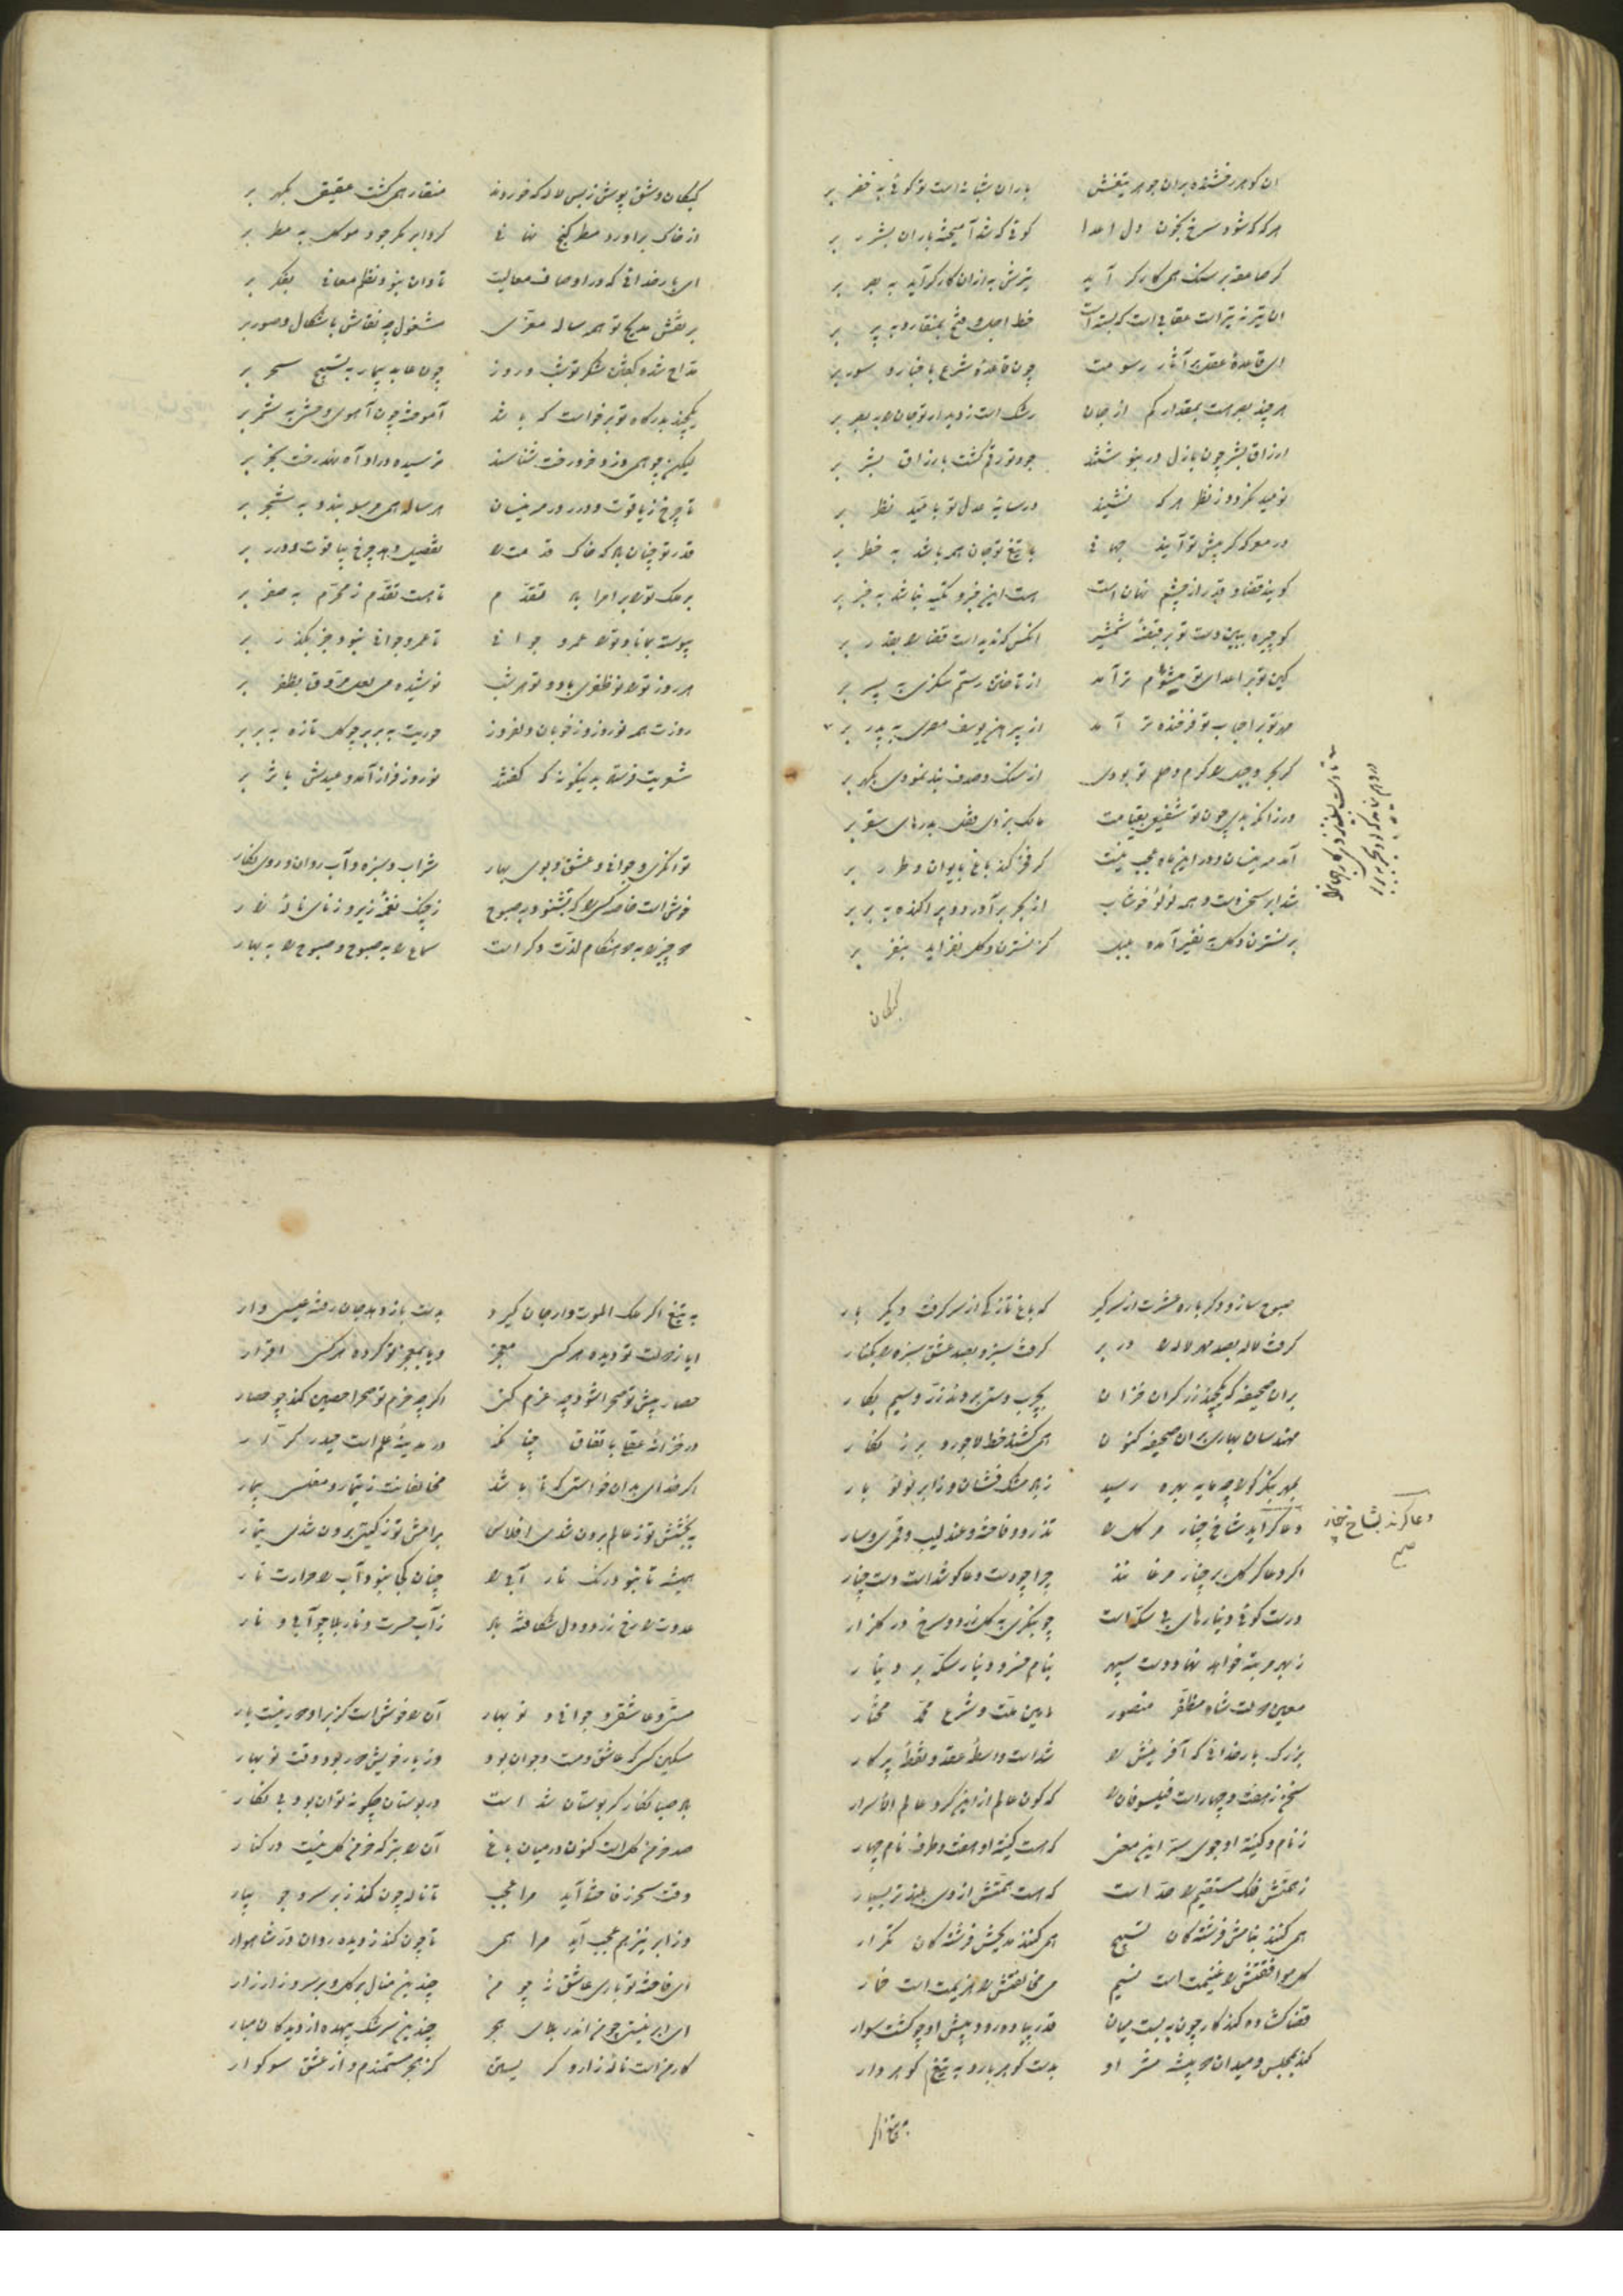 ان گوهر رخشنده بران جوهر تیغش باران شبانه است تو گوئی به خضر بر
هر که که شود سرخ بخون دل اعدا گوئی که شد آمیخته باران بشرر بر
گر صاعقه بر سنگ همی کارگر آید تیرش به ازان کارگر آید به بر
ان تیر نه تیر است عقابی است که بسته است خط اجل و فتح بمنقار و به پر بر
ای قاعده عقل بر آثار رسومت چون قاعده شرع باخبار و سور بر
هر چند بصر هست بمقدار کم از جان رشک است ز دیدار تو جان را به بصر بر
ارزاق بشر چون بازل در بنوشتند جود تو رقم گشت بارزاق بشر بر
نومید نگردد ز نظر هر که نشیند در سایه عدل تو بامید نظر بر
در معرکه گر پیش تو آیند جهانی با تیغ تو جان همه باشد به خطر بر
گویند قضا و قدر از چشم نهان است هست این خبر و تکیه نباشد به خبر بر
گو چیره ببین دست تو بر قبضه شمشیر انکس که ندیده است قضا را بقدر بر
کین تو بر اعدای تو میشوم تر آمد از تاختن رستم سگزی به پسر بر
مهر تو بر احباب تو فرخنده تر آمد از پیرهن یوسف مصری به پدر بر
گر بحر و جبل را کرم و حلم تو بودی از سنگ و صدف بند نبودی بگهر بر
ور زانکه بدی چون تو شفیعی بقیامت مالک بزدی قفل بدرهای سقر بر
آمد مه نیسان و در این ماه عجب نیست گر فخر کند باغ بایوان و طرر بر
شد ابر سخی دست و همه لؤلؤ خوشاب از بحر برآورد و پراکنده به بر بر
بر نسترن و گل به نفیر آمده بلبل کز نسترن و گل بفزاید بنفر بر
کبکان
کبکان وشق پوش ز بس لاله که خوردند منقار همی گشت عقیقی بگهر بر
از خاک برآورد مطر گنج نهانی گردابر مگر جود موکل به مطر بر
ای بار خدائی که در اوصاف معالیت تاوان نبود نظم معانی بفکر بر
بر نقش مدیح تو همه ساله معزی مشغول چو نقاش باشکال و صور بر
مداح شده بگفتن شکر تو شب و روز چون عابد بیمار به تسبیح سحر بر
یکچند بدرگاه تو بر خواست که باشد آموخته چون آهوی وحشی به شمر بر
لیکن چو همی دزد خرد رفت شناسد ترسیده در او آمد و رفت بخر بر
تا چرخ ز یاقوت و درر در مه نیسان هر ساله همی مرسله بندد به شجر بر
قدر تو چنان باد که خاک قدمت را تفضیل دهد چرخ بیاقوت و درر بر
بر ملک تو را بر امرا باد تقدم تا هست تقدم ز محرم به صفر بر
پیوسته بماناد تو را عمر و جوانی تا عمر و جوانی نبود جز بگذر بر
هر روز تو را نو ظفری باد و تو هر شب نوشیده می لعل مروق بظفر بر
روزت همه نوروز و ز خوبان دلفروز حوریت به بر بر چو گل تازه به بربر
شعریت فرستم به نیکوئی که گفتند نوروز فراز آمد و عیدش باثر بر
توانگری و جوانی و عشق و بوی بهار شراب و سبزه و آب روان و روی نگار
خوش است خاصه کسی را که بشنود به صبوح ز چنگ نغمه زیر و ز نای ناله زار
هر چیز را به هر هنگام لذت دگر است سماع را به صبوح و صبوح را به بهار
صبوح ساز و دگر باره عشرت از سر گیر که باغ تازگی از سر گرفت دیگر بار
گرفت لاله بصد مهر لاله را در بر گرفت سبزه بصد عشق سبزه را بکنار
بران صحیفه که یکچند زرگران خزان بچرب دستی بردند زر و سیم بکار
مهندسان بهاری بر ان صحیفه کنون همی کشند خط لاجورد بر زنگار
بمهر بنگر که لاله چه مایه بهره رسید ز باد مشک فشان و ز ابر لؤلؤ بار
دعا گر آید شاخ چنار مر گل را تذرو و فاخته و عندلیب و قمری و سار
دعا کرند بشاخ چنار صح
اگر دعاگر گل بر چنار مرغانند چرا چو دست دعا گو شد است دست چنار
درست گوئی دینارهای بی سکه است چو بنگری به گل زرد و سرخ در گلزار
ز بهر مرتبه خواهد نهاد دست سپهر بنام خسرو دینار سکه بر دینار
معین دولت شاه مظفر منصور امین ملت و شرع محمد مختار
بزرگ بار خدائی که آفرینش را شد است واسطه عقد و نقطه پرکار
سخن ز هفت و چهار است فیلسوفان را که کون عالم ازاین کرد عالم الاسرار
ز نام و کنیه او جوی سر این معنی که هست کنیه او هفت و حرف نام چهار
ز همتش فلک مستقیم را حد است که هست همتش از وی بلندتر بسیار
همی کنند بنامش فرشتگان تسبیح همی کنند مدیحش فرشتگان تکرار
گل موافقتش را غنیمت است نسیم می مخالفتش را هزیمت است خمار
قضا گشاده کند کار چون ببست میان قدر پیاده رود پیش او چو گشت سوار
کند بمجلس و میدان همیشه مشر او بدست گوهر بار و به تیغ گوهردار
به تیغ اگر
به تیغ اگر ملک الموت وار جان گیرد بدست باز دهد جان رفته عیسی وار
ایا ز دولت تو دیده هر کسی معجز و یا بمعجز تو کرده هر کسی اقرار
حصار پیش تو صحرا شود چو عزم کنی اگر چه خرم تو صحرا حصین کند چو حصار
در خزانه عقلی باتفاق چنانکه در مدینه علم است حیدر کرار
اگر خدای بدان خواستی که تا باشد مخالفانت ز تیمار و مفلسی بیمار
به بخشش تو ز عالم برون شدی افلاس برامش تو ز گیتی برون شدی تیمار
همیشه تا نبود رنگ نار آبی را چنان کجا نبود آب را حرارت نار
عدوت را رخ زرد و دل شکافته باد ز آب حسرت و نار بلا چو آبی و نار
مست و عاشقی و جوانی و نوبهار آن را خوش است کز بر او دور نیست یار
مسکین کسی که عاشق و مست و جوان بود وز یار خویش دور بود وقت نوبهار
باد صبا نگارگر بوستان شد است در بوستان چگونه توان بود بی نگار
صد خرمن گل است کنون در میان باغ آن را بتر که خرمن گل نیست در کنار
وقت سحر ز فاخته آید مرا عجب تا ناله چون کند زبر سرو جویبار
وز ابر نیز هم عجب آید مرا همی تا چون کند ز دیده روان در شاهوار
ای فاخته تو باری عاشق نه‌ای چو من چندین منال بر گل و بر سرو زار زار
ای ابر نیستی چو من اندر بلای هجر چندین سرشک بیهده از دیدگان مبار
کار من است ناله زار و گریستن کز هجر مستمندم و از عشق سوگوار